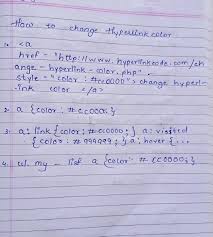 How to change Hyperlink color
1. <a
href = "http://www.hyperlinkcode.com/ch
ange - hyperlink - color.php".
style = "color : #cc0000"> change hyperl-
-ink color </a>
2. a {color : #cc0000;}
3. a: link {color: #cc0000;} a: visited
{color : #999999;} a: hover {...
4. ul. my - list a {color: #cc0000;}